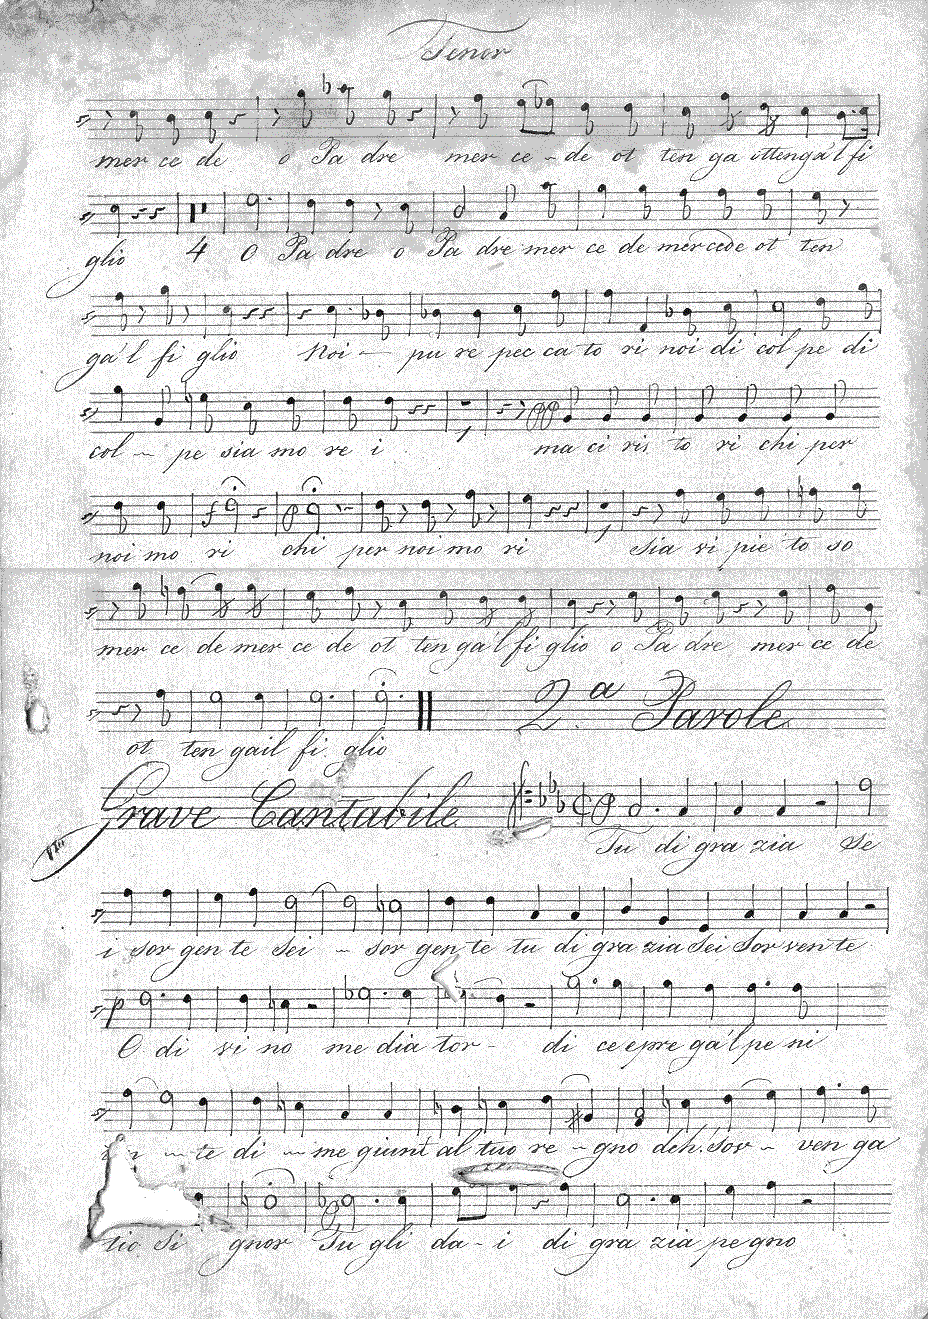 Tenor
mer ce de o Pa dre mer ce - de ot ten ga ottenga'l fi
glio 4 O Pa dre o Pa dre mer ce de mercede ot ten
ga'l fi glio Noi - pu re pec ca to ri noi di col pe di
col - pe sia mo re i 1 ma ci ris to ri chi per
noi mo ri chi per noi mo ri 1 Sia vi pie to so
mer ce de mer ce de ot ten ga'l fi glio o Pa dre mer ce de
ot ten gail fi glio 2.a Parole
Grave Cantabile
Tu di gra zia Se
i sor gen te sei - sor gen te tu di gra zia sei sor ven te
p O di vi no me dia tor - di ce e pre ga'l pe ni
- te di - me giunt al tuo re - gno deh. Sov - ven ga
tio Si gnor Tu gli da - i di gra zia pe gno